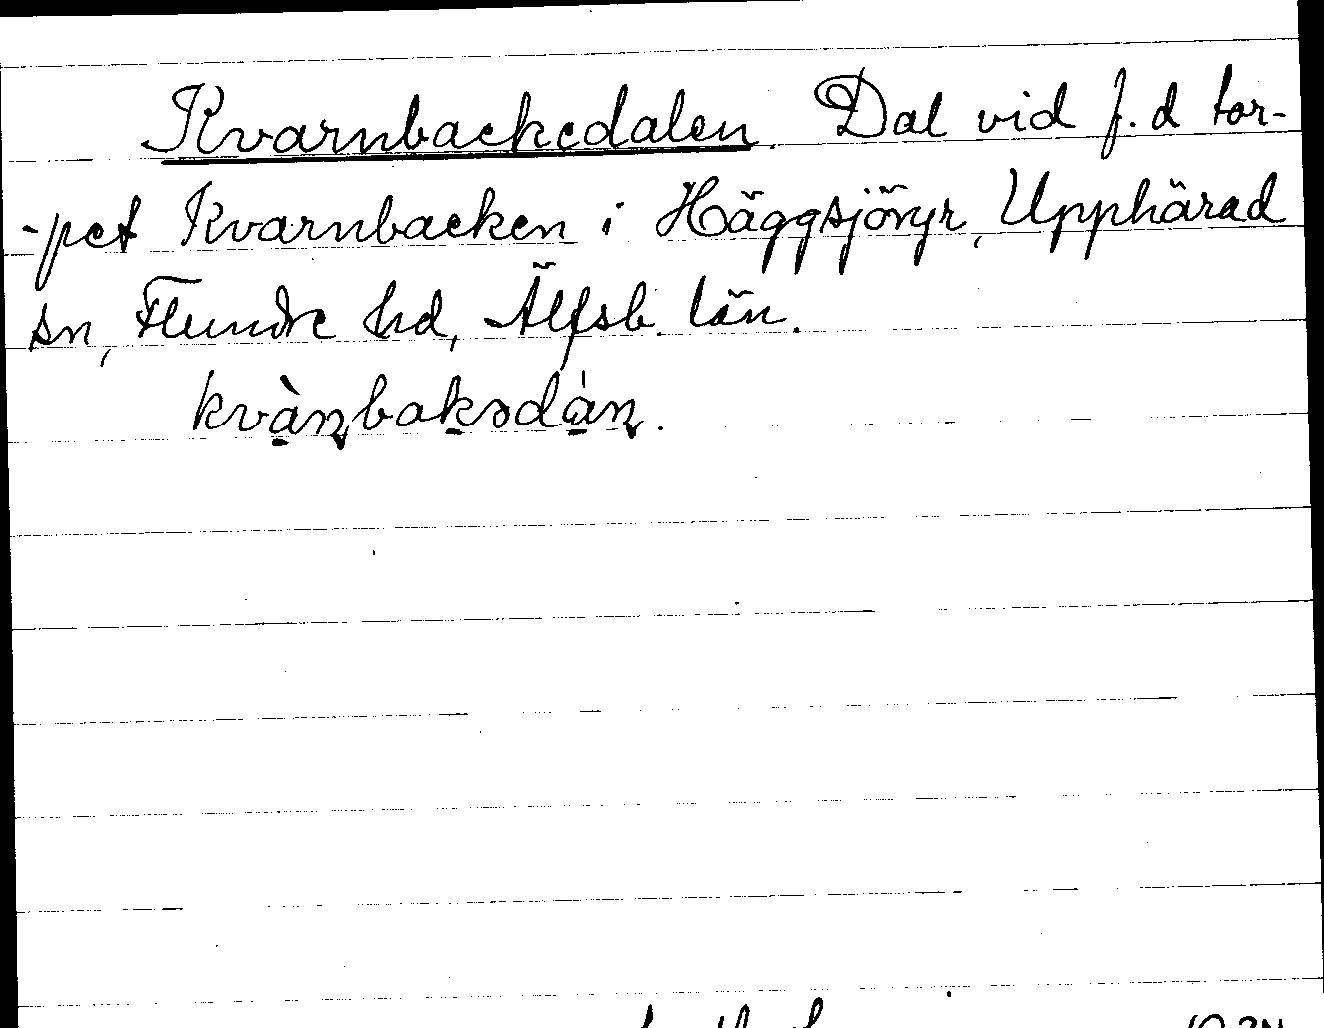 Kvarnbackedalen. Dal vid f. d tor-
-pet Kvarnbacken i Häggsjöryr, Upphärad
sn, Flundre hd, Älfsb. län.
kvàɳbakədáɳ.